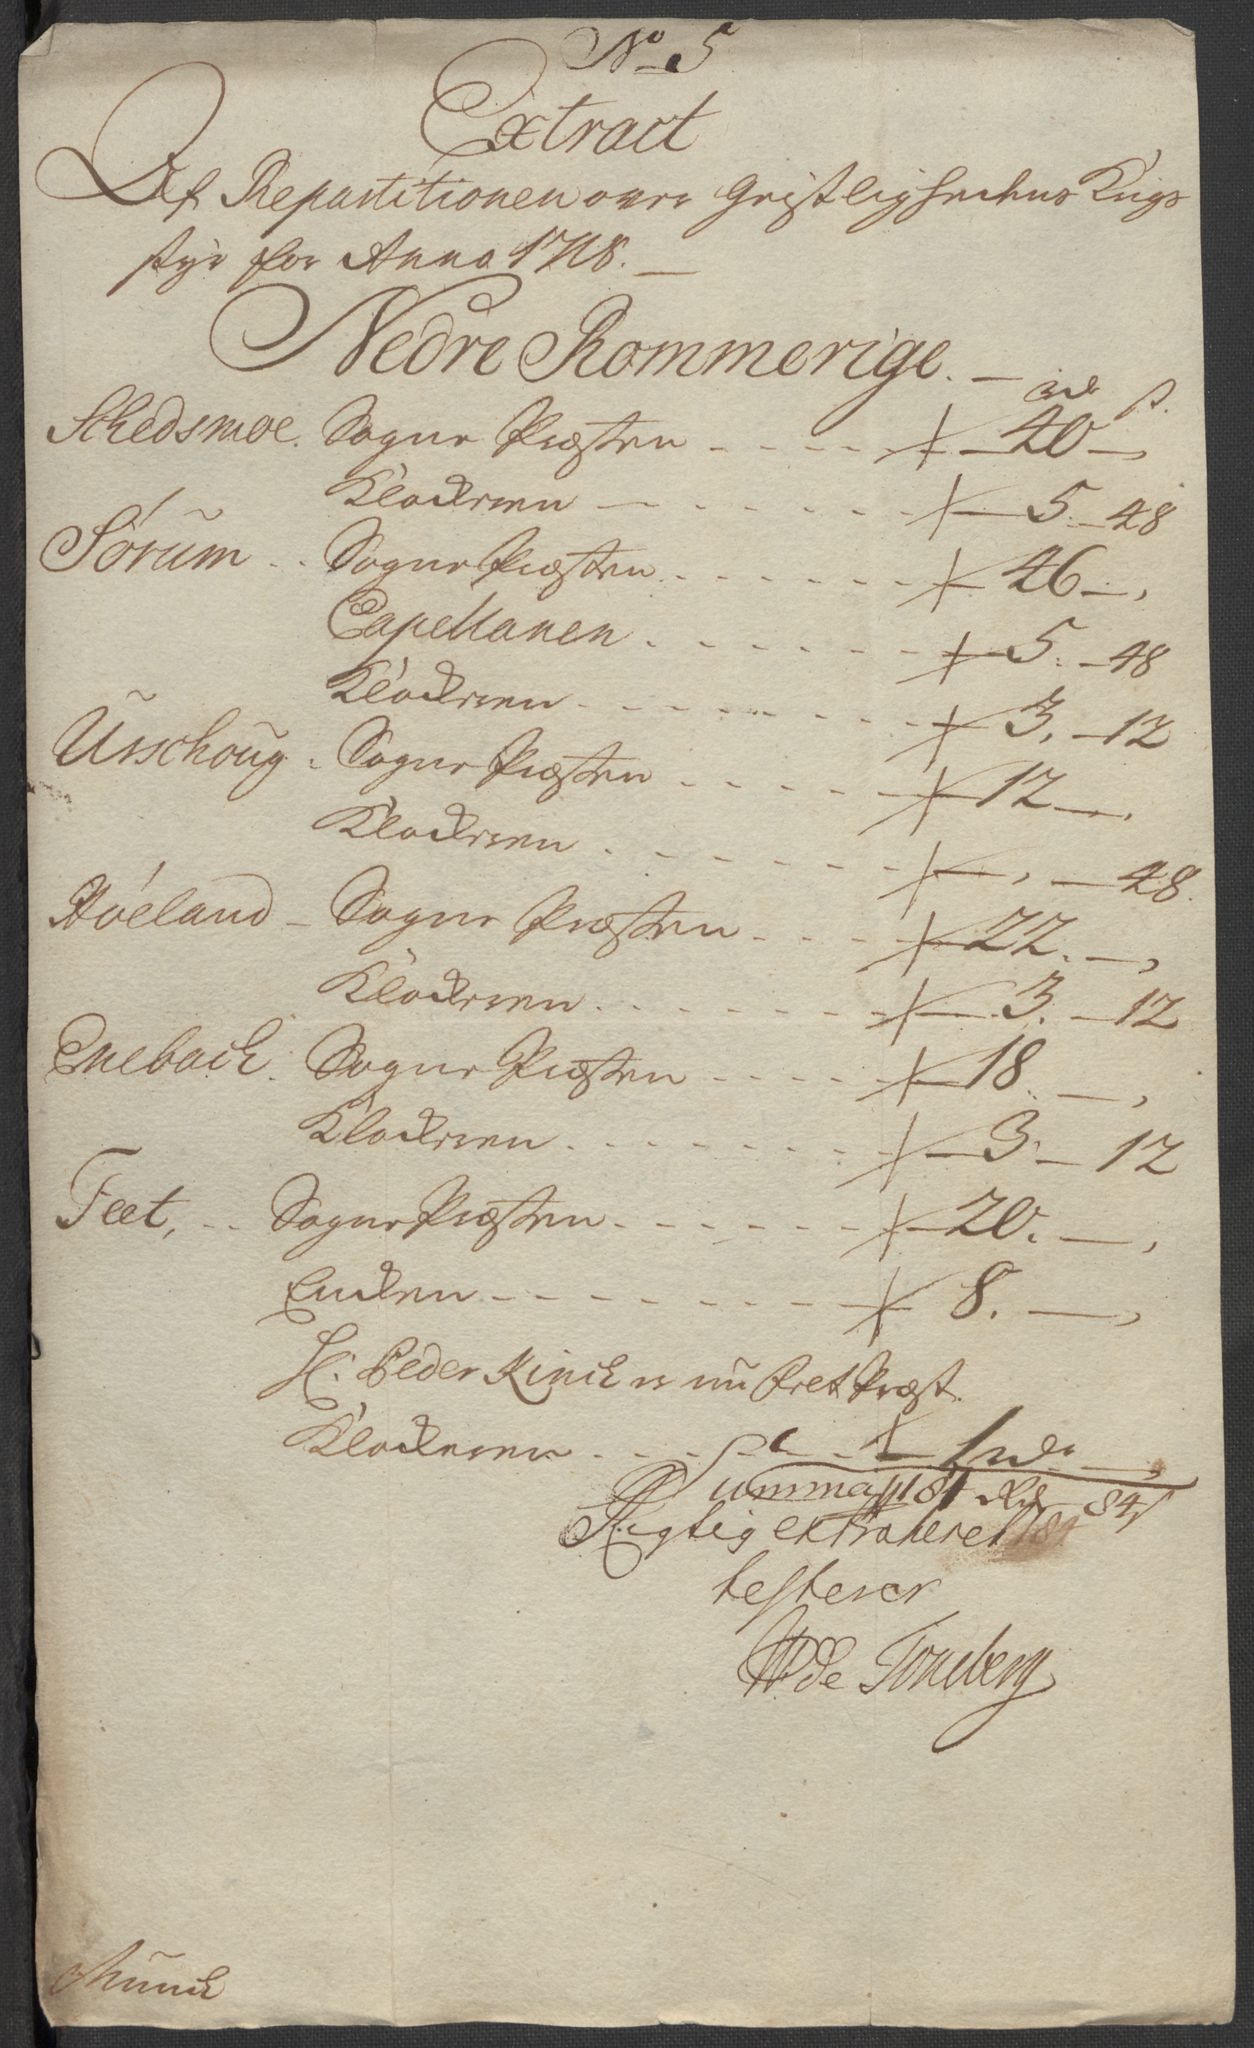 No 5
Extract
Af Repartitionen over Geistlighedens Krigs
styr for Anno 1718.
Nedre Rommerige.
rdr ß.
Schedsmoe. Sogne Præsten 40 —,
Klockeren 5. — 48
Sørum Sogne Præsten 46 —,
Capellanen 5. — 48
Klockeren 3. — 12
Urschoug. Sogne Præsten 12 —,
Klockeren , — 48.
Høeland – Sogne Præsten 22. —,
Klockeren 3. — 12
Enebach. Sogne Præsten 18. —,
Klockeren 3. — 12
Feet, Sogne Præsten 20. —,
Enken 8. —,
Hr. Peder Kinck er nu Feet Præst.
Klockeren 1 rdr —,
Summa 187 Rdr 84 ß
Rigtig extraheret
testerer
de Tonsberg
Munck